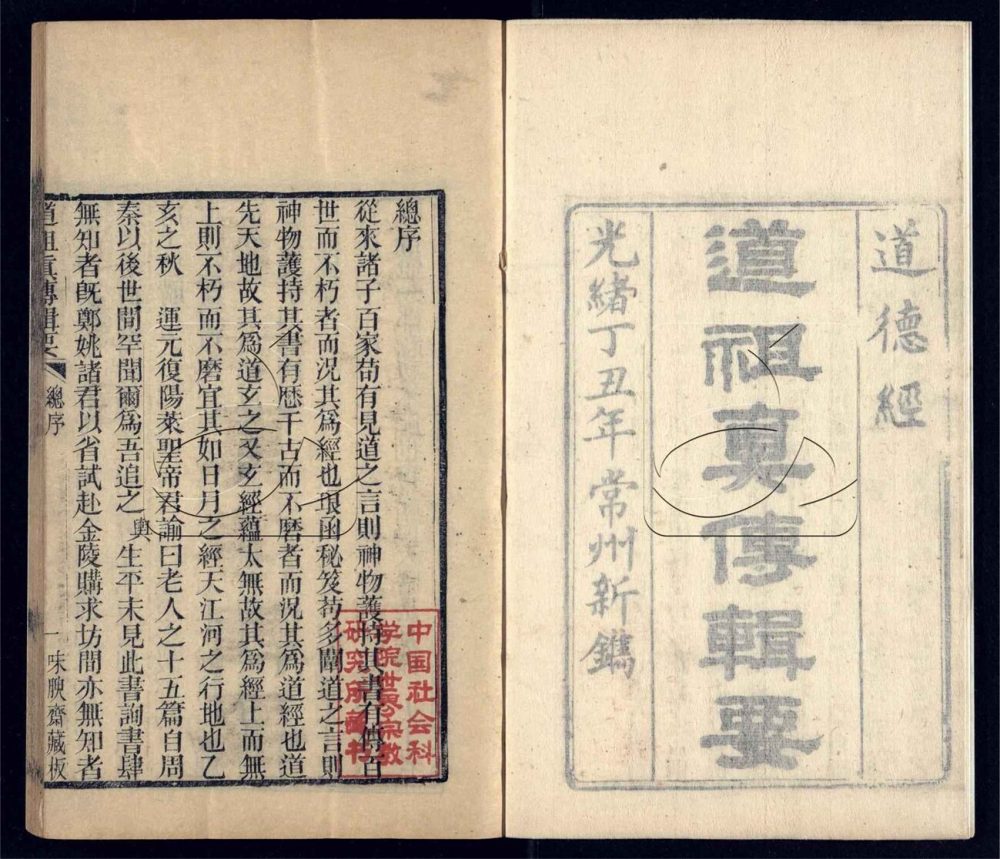 道德經
道祖真傳輯要
光緒丁丑年常州新鐫
總序
從來諸子百家苟有見道之言則神物護持其書有傳百
世而不朽者而況其爲經也琅函秘笈苟多闡道之言則
神物護持其書有歷千古而不磨者而況其爲道經也道
先天地故其爲道玄之又玄經蘊太無故其爲經上而無
上則不朽而不磨宜其如日月之經天江河之行地也乙
亥之秋 運元復陽萊聖帝君諭曰老人之十五篇自周
秦以後世間罕聞爾爲吾追之 生平未見此書詢書肆
無知者旣鄭姚諸君以省試赴金陵購求坊間亦無知者
道祖真傳輯要 總序 一 味腴齋藏板
中国社会科
学院世界宗教
研究所藏书